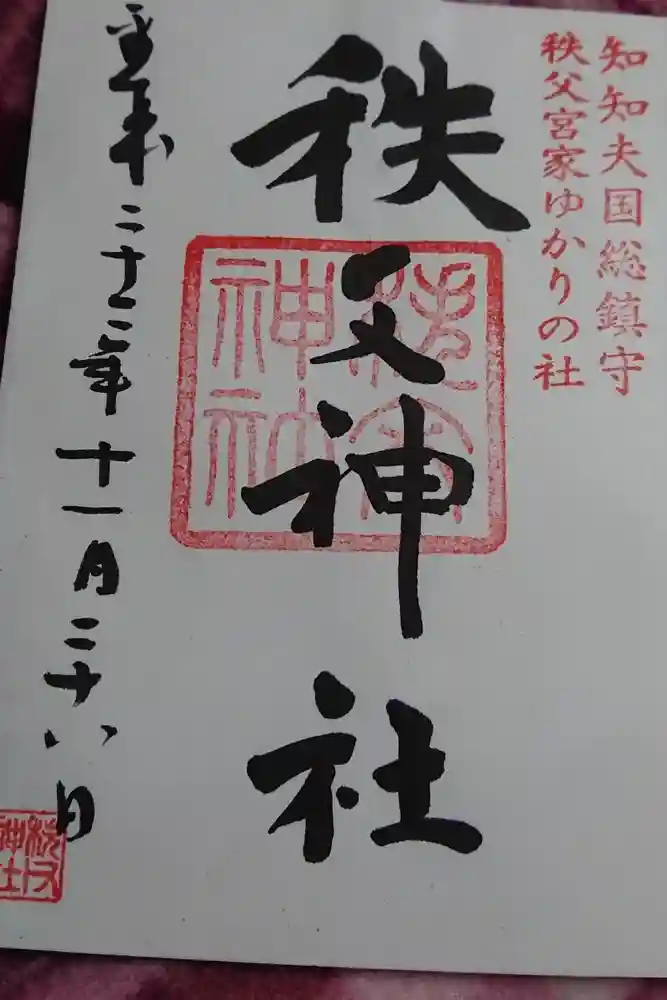 知知夫国総鎮守
秩父宮家ゆかりの社
秩父神社
二十二年十一月二十八日
秩父神社